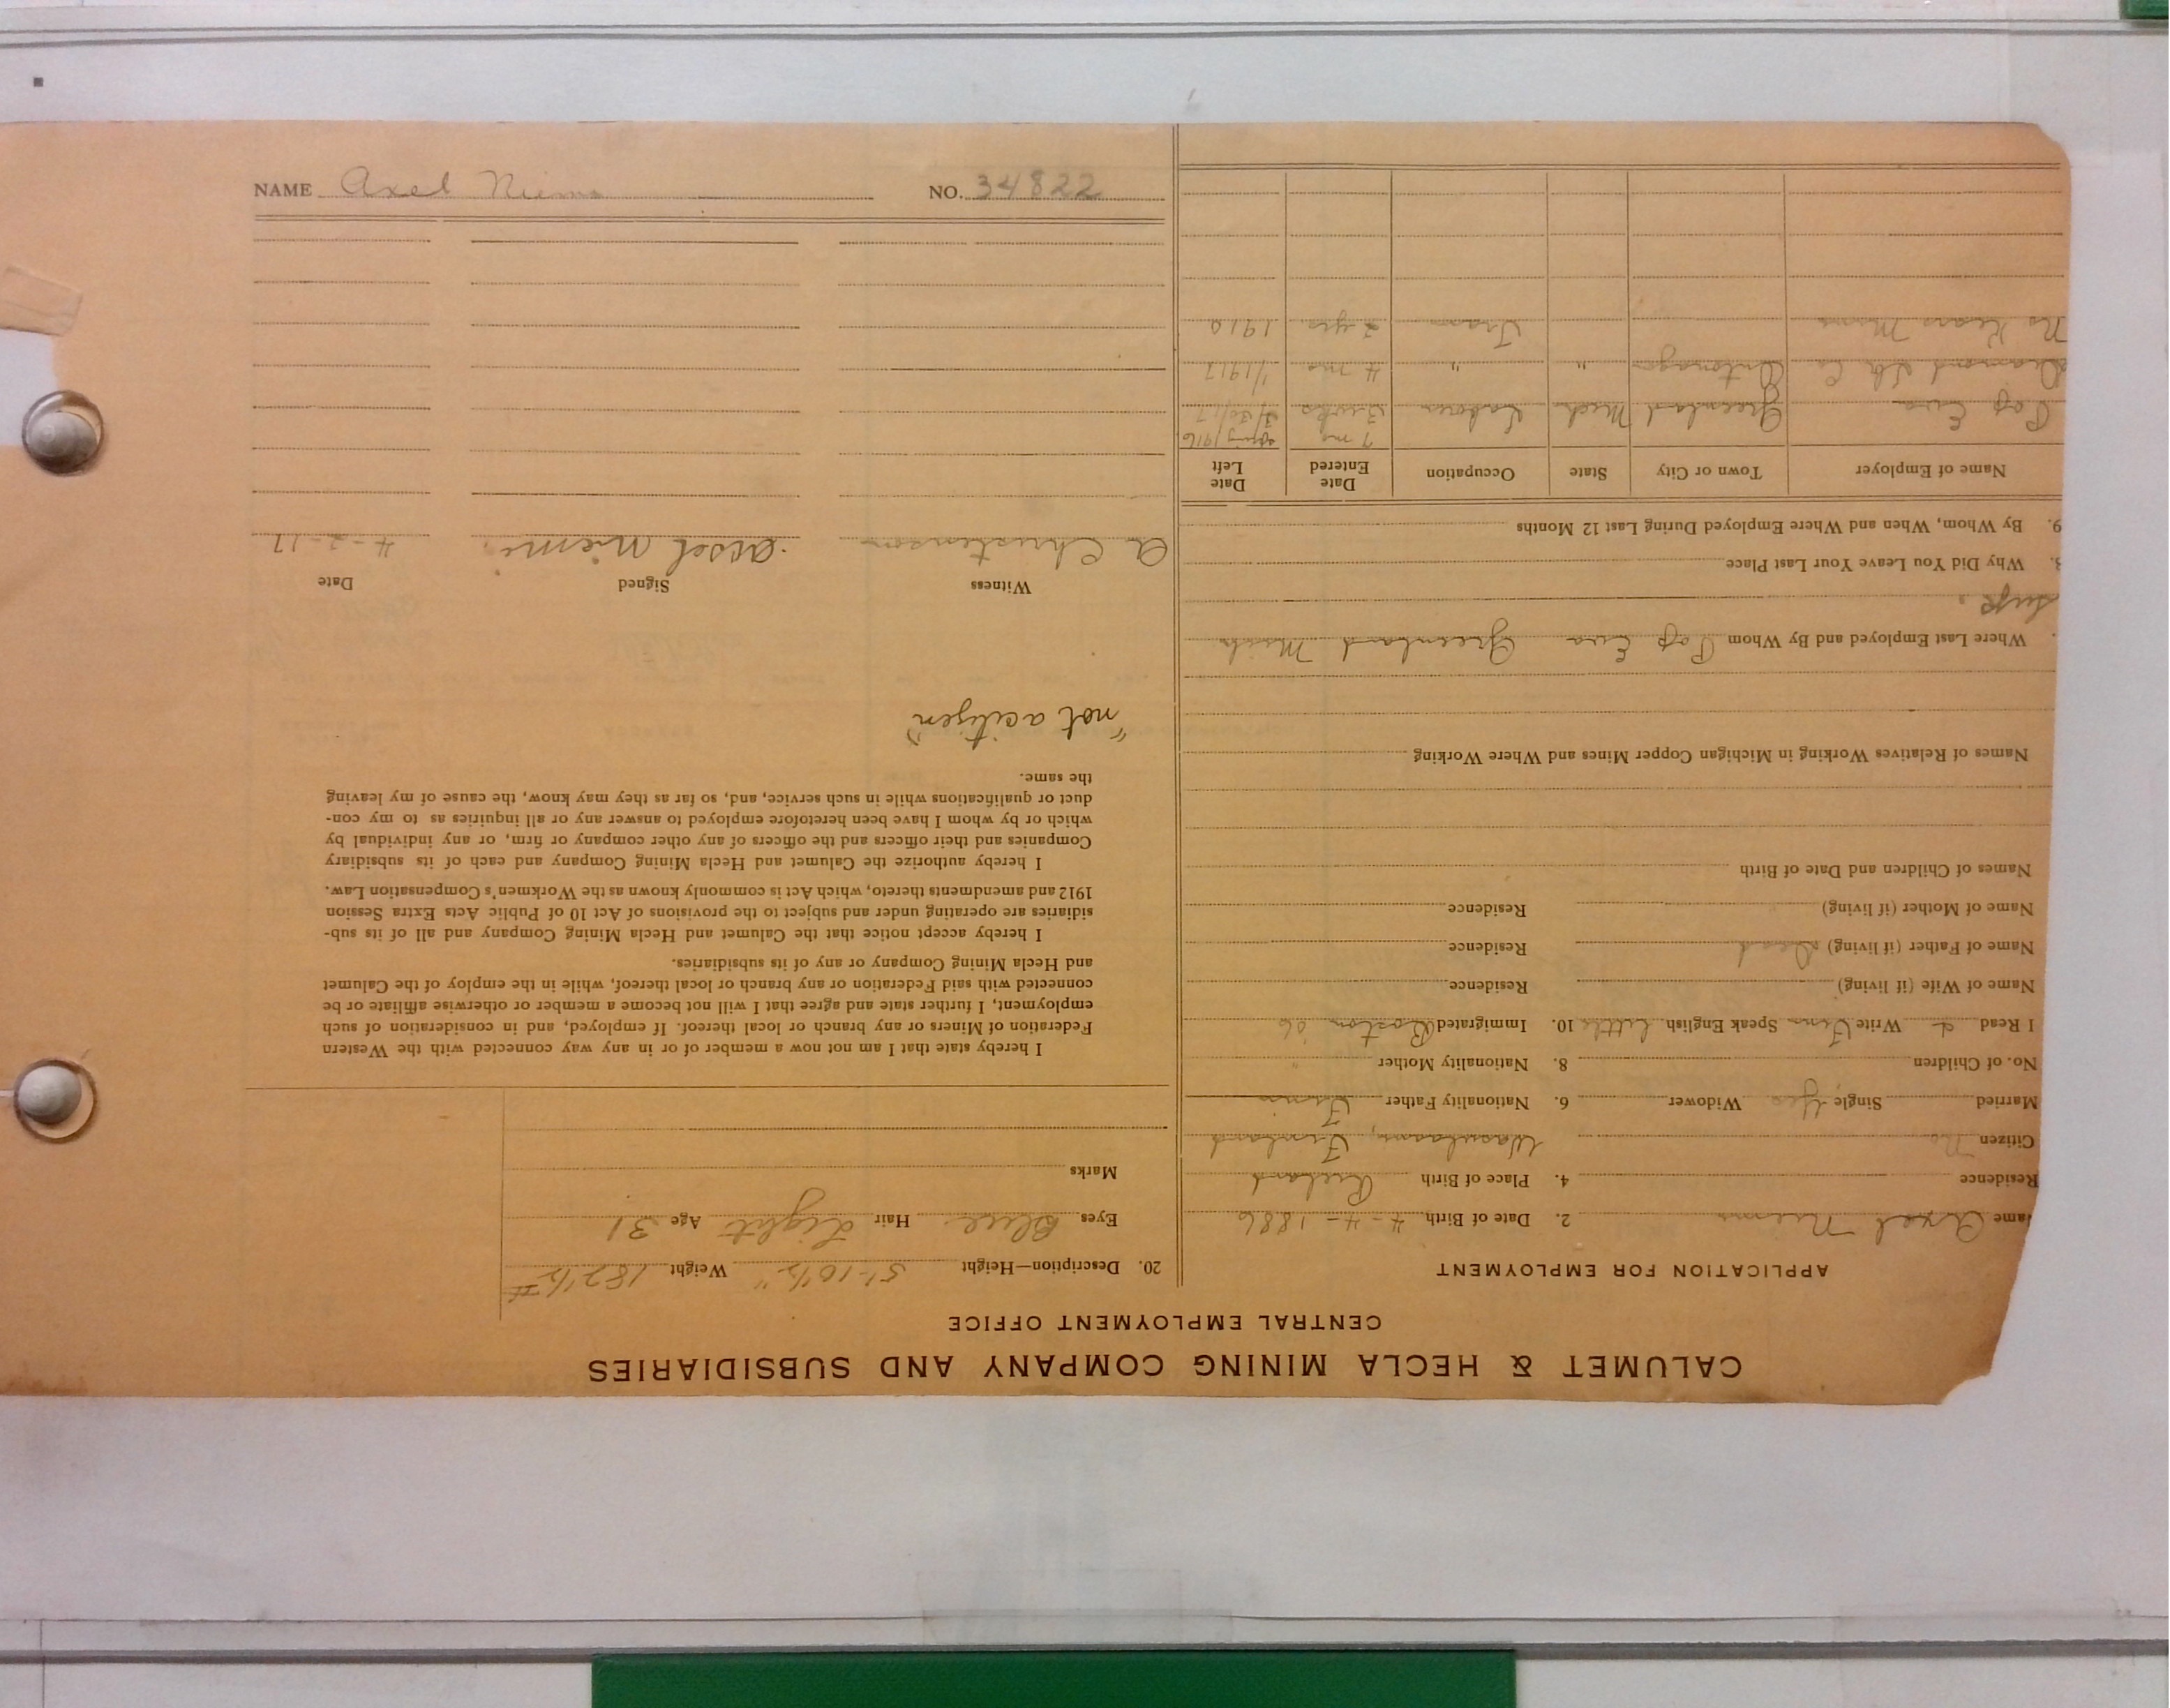 NAME Axel Niemi NO. 34822
CALUMET & HECLA MINING COMPANY AND SUBSIDIARIES
CENTRAL EMPLOYMENT OFFICE
APPLICATION FOR EMPLOYMENT
Name Axel Niemi 2. Date of Birth 4-4-1886
Residence 4. Place of Birth
Citizen No Finland
Married Single Yes Widower 6. Nationality Father Finn
No. of Children 8. Nationality Mother "
I Read & Write Finn Speak English little 10. Immigrated Boston 06
Name of Wife (if living) Residence
Name of Father (if living) Dead Residence
Name of Mother (if living) Residence
Names of Children and Date of Birth
Names of Relatives Working in Michigan Copper Mines and Where Working
Where Last Employed and By Whom Pop Eva Greenland Mich
Why Did You Leave Your Last Place
9. By Whom, When and Where Employed During Last 12 Months
Name of Employer Town or City State Occupation Date Entered Date Left
7 mo Spring 1916
Pop Eva Greenland Mich Labour 3 wks 3/30/17
Diamond Co Ontonagon " " 4 mo 1/1917
No Kears Tram 2 yrs 1910
20. Description—Height 5'-10½" Weight 182½ #
Eyes Blue Hair Light Age 31
Marks
I hereby state that I am not now a member of or in any way connected with the Western
Federation of Miners or any branch or local thereof. If employed, and in consideration of such
employment, I further state and agree that I will not become a member or otherwise affiliate or be
connected with said Federation or any branch or local thereof, while in the employ of the Calumet
and Hecla Mining Company or any of its subsidiaries.
I hereby accept notice that the Calumet and Hecla Mining Company and all of its sub-
sidiaries are operating under and subject to the provisions of Act 10 of Public Acts Extra Session
1912 and amendments thereto, which Act is commonly known as the Workmen's Compensation Law.
I hereby authorize the Calumet and Hecla Mining Company and each of its subsidiary
Companies and their officers and the officers of any other company or firm, or any individual by
which or by whom I have been heretofore employed to answer any or all inquiries as to my con-
duct or qualifications while in such service, and, so far as they may know, the cause of my leaving
the same.
"not a citizen"
Witness Signed Date
A Christenson Assel Niemi 4-2-17